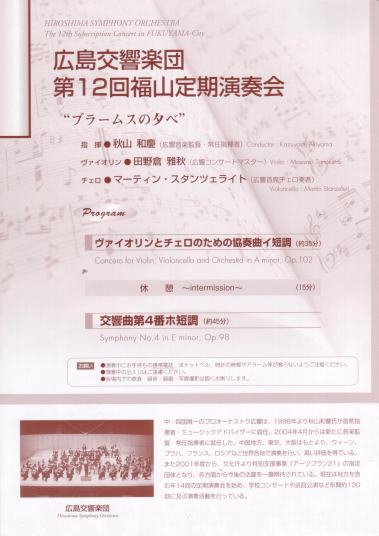 HIROSHIMA SYMPHONY ORCHESTRA
The 12th Subscription Concert in FUKUYAMA-City
広島交響楽団
第12回福山定期演奏会
“ブラームスの夕べ”
指 揮●秋山 和慶（広響音楽監督・常任指揮者）Conductor : Kazuyoshi Akiyama
ヴァイオリン●田野倉 雅秋（広響コンサートマスター）Violin : Masaaki Tanokura
チェロ●マーティン・スタンツェライト（広響首席チェロ奏者）
Violoncello : Martin Stanzeleit
Program
ヴァイオリンとチェロのための協奏曲イ短調（約35分）
Concerto for Violin, Violoncello and Orchestra in A minor, Op.102
休 憩 〜intermission〜 （15分）
交響曲第4番ホ短調（約45分）
Symphony No.4 in E minor, Op.98
お願い
●演奏中にお手持ちの携帯電話、ポケットベル、時計の時報やアラーム等が鳴らないようご注意ください。
●演奏中の出入りはご遠慮ください。
●会場内での飲食・録音・録画・写真撮影は固くお断りします。
中・四国唯一のプロオーケストラ広響は、1998年より秋山和慶氏が首席指
揮者・ミュージックアドバイザーに就任。2004年4月からは新たに音楽監
督・常任指揮者に就任した。中国地方、東京、大阪はもとより、ウィーン、
プラハ、フランス、ロシアなど世界各地で演奏を行い、高い評価を得ている。
また2001年度から、文化庁より特別支援事業「アーツプラン21」の指定
団体となり、各方面から今後の活躍を一層期待されている。現在は地方を含
む年14回の定期演奏会を始め、学校コンサートや巡回公演など年間約130
回に及ぶ演奏活動を行っている。
広島交響楽団
Hiroshima Symphony Orchestra